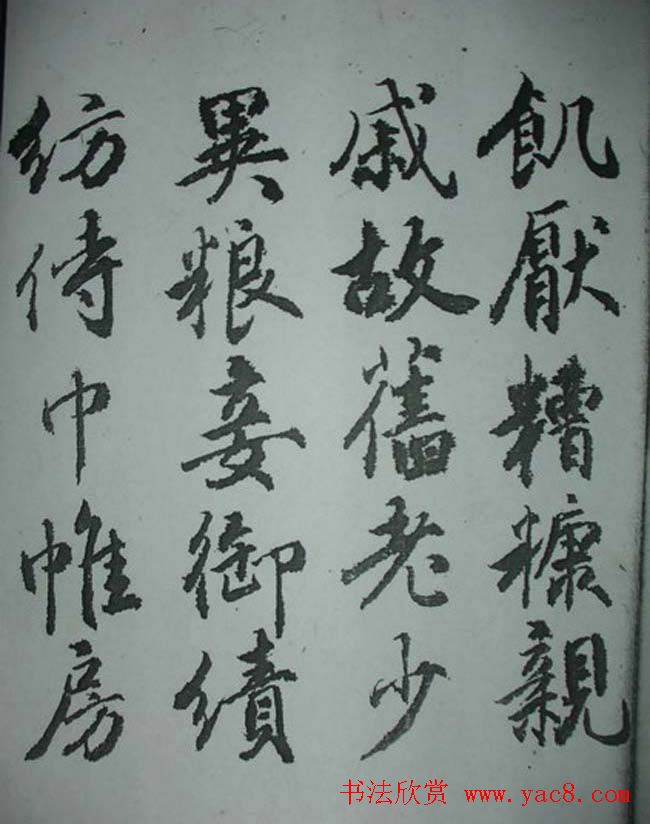 飢厭糟糠親
戚故舊老少
異粮妾御績
紡侍巾帷房
书法欣赏 www.yac8.com